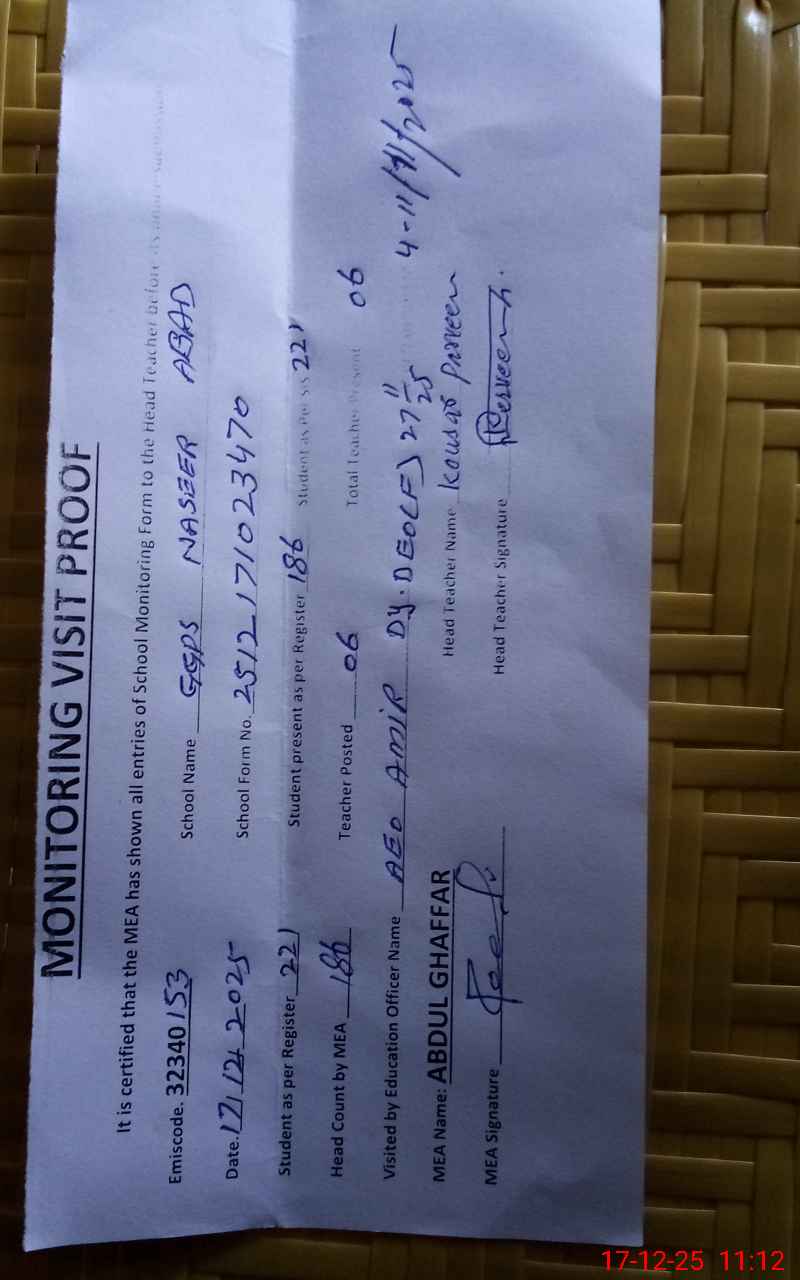 MONITORING VISIT PROOF
It is certified that the MEA has shown all entries of School Monitoring Form to the Head Teacher before
Emiscode. 32340153 School Name GGPS NASEER ABAD
Date. 17/12/2025 School Form No. 2512171023470
Student as per Register 221 Student present as per Register 186 Student as Per SIS 221
Head Count by MEA 186 Teacher Posted 06 Total Teacher Present 06
Visited by Education Officer Name AEO AMIR Dy. DEO(F) 27 11/25 4-11/2025
MEA Name: ABDUL GHAFFAR Head Teacher Name Kousar Parveen
MEA Signature Head Teacher Signature
17-12-25 11:12